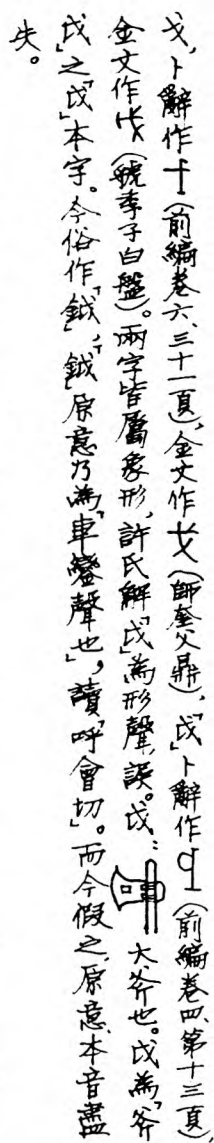 戈，卜辭作（前編卷六、三十一頁），金文作（師奎父鼎），「戉」卜辭作（前編卷四、第十三頁）
金文作（虢季子白盤）。兩字皆屬象形，許氏解「戉」為形聲，誤。戉：大斧也。戉為「斧
戉」之「戉」本字。今俗作「鉞」，「鉞」原意乃為「車鑾聲也」，讀「呼會切」。而今假之，原意本音盡
失。